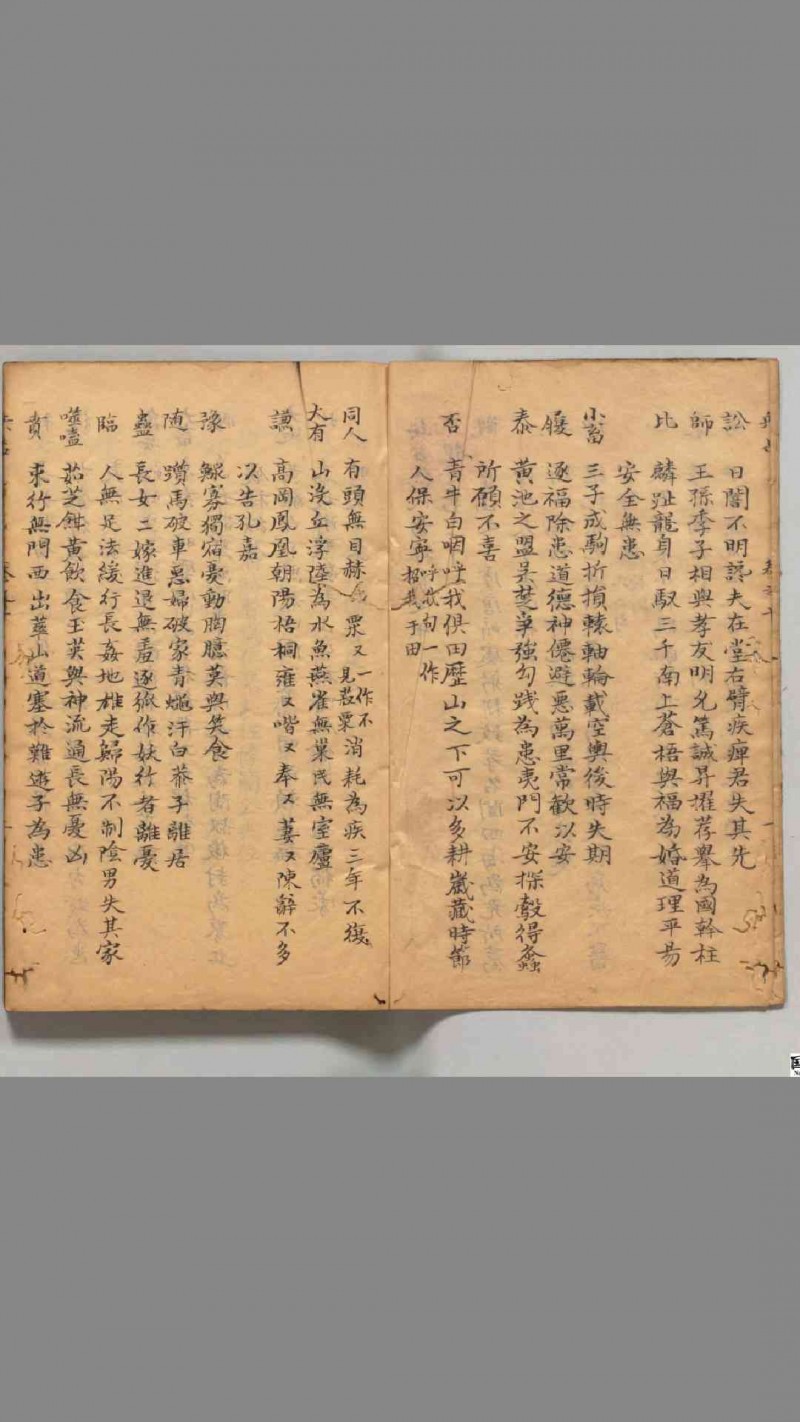 訟 日闇不明讒夫在堂右臂疾痺君失其光
師 王孫季子相與孝友明允篤誠昇擢荐舉為國幹柱
比 麟趾龍身日馭三千南上蒼梧與福為婚道理平易
安全無患
小畜 三子成駒折損轅軸輪載空輿後時失期
履 逐福除患道德神僊避惡萬里常歡以安
泰 黃池之盟吳楚爭強勾踐為患夷門不安探鷇得螽
所願不喜
否 青牛白咽呼我俱田歷山之下可以多耕歲藏時節
人保安寧 呼我句一作招我于田
同人 有頭無目赫 粟又一作不見菽粟消耗為疾三年不復
大有 山沒丘浮陸為水魚燕雀無巢民無室廬
謙 高岡鳳凰朝陽梧桐雍又喈又奉又萋又陳辭不多
以告孔嘉
豫 鰥寡獨宿憂動胸臆莫與笑食
隨 躓馬破車惡婦破家青蠅汙白恭子離居
蠱 長女三嫁進退無羞逐狐作妖行者離憂
臨 人無足法緩行長姦地雄走歸陽不制陰男失其家
噬嗑 茹芝餌黃飲食玉英與神流通長無憂凶
賁 東行無門西出華山道塞於難遊子為患